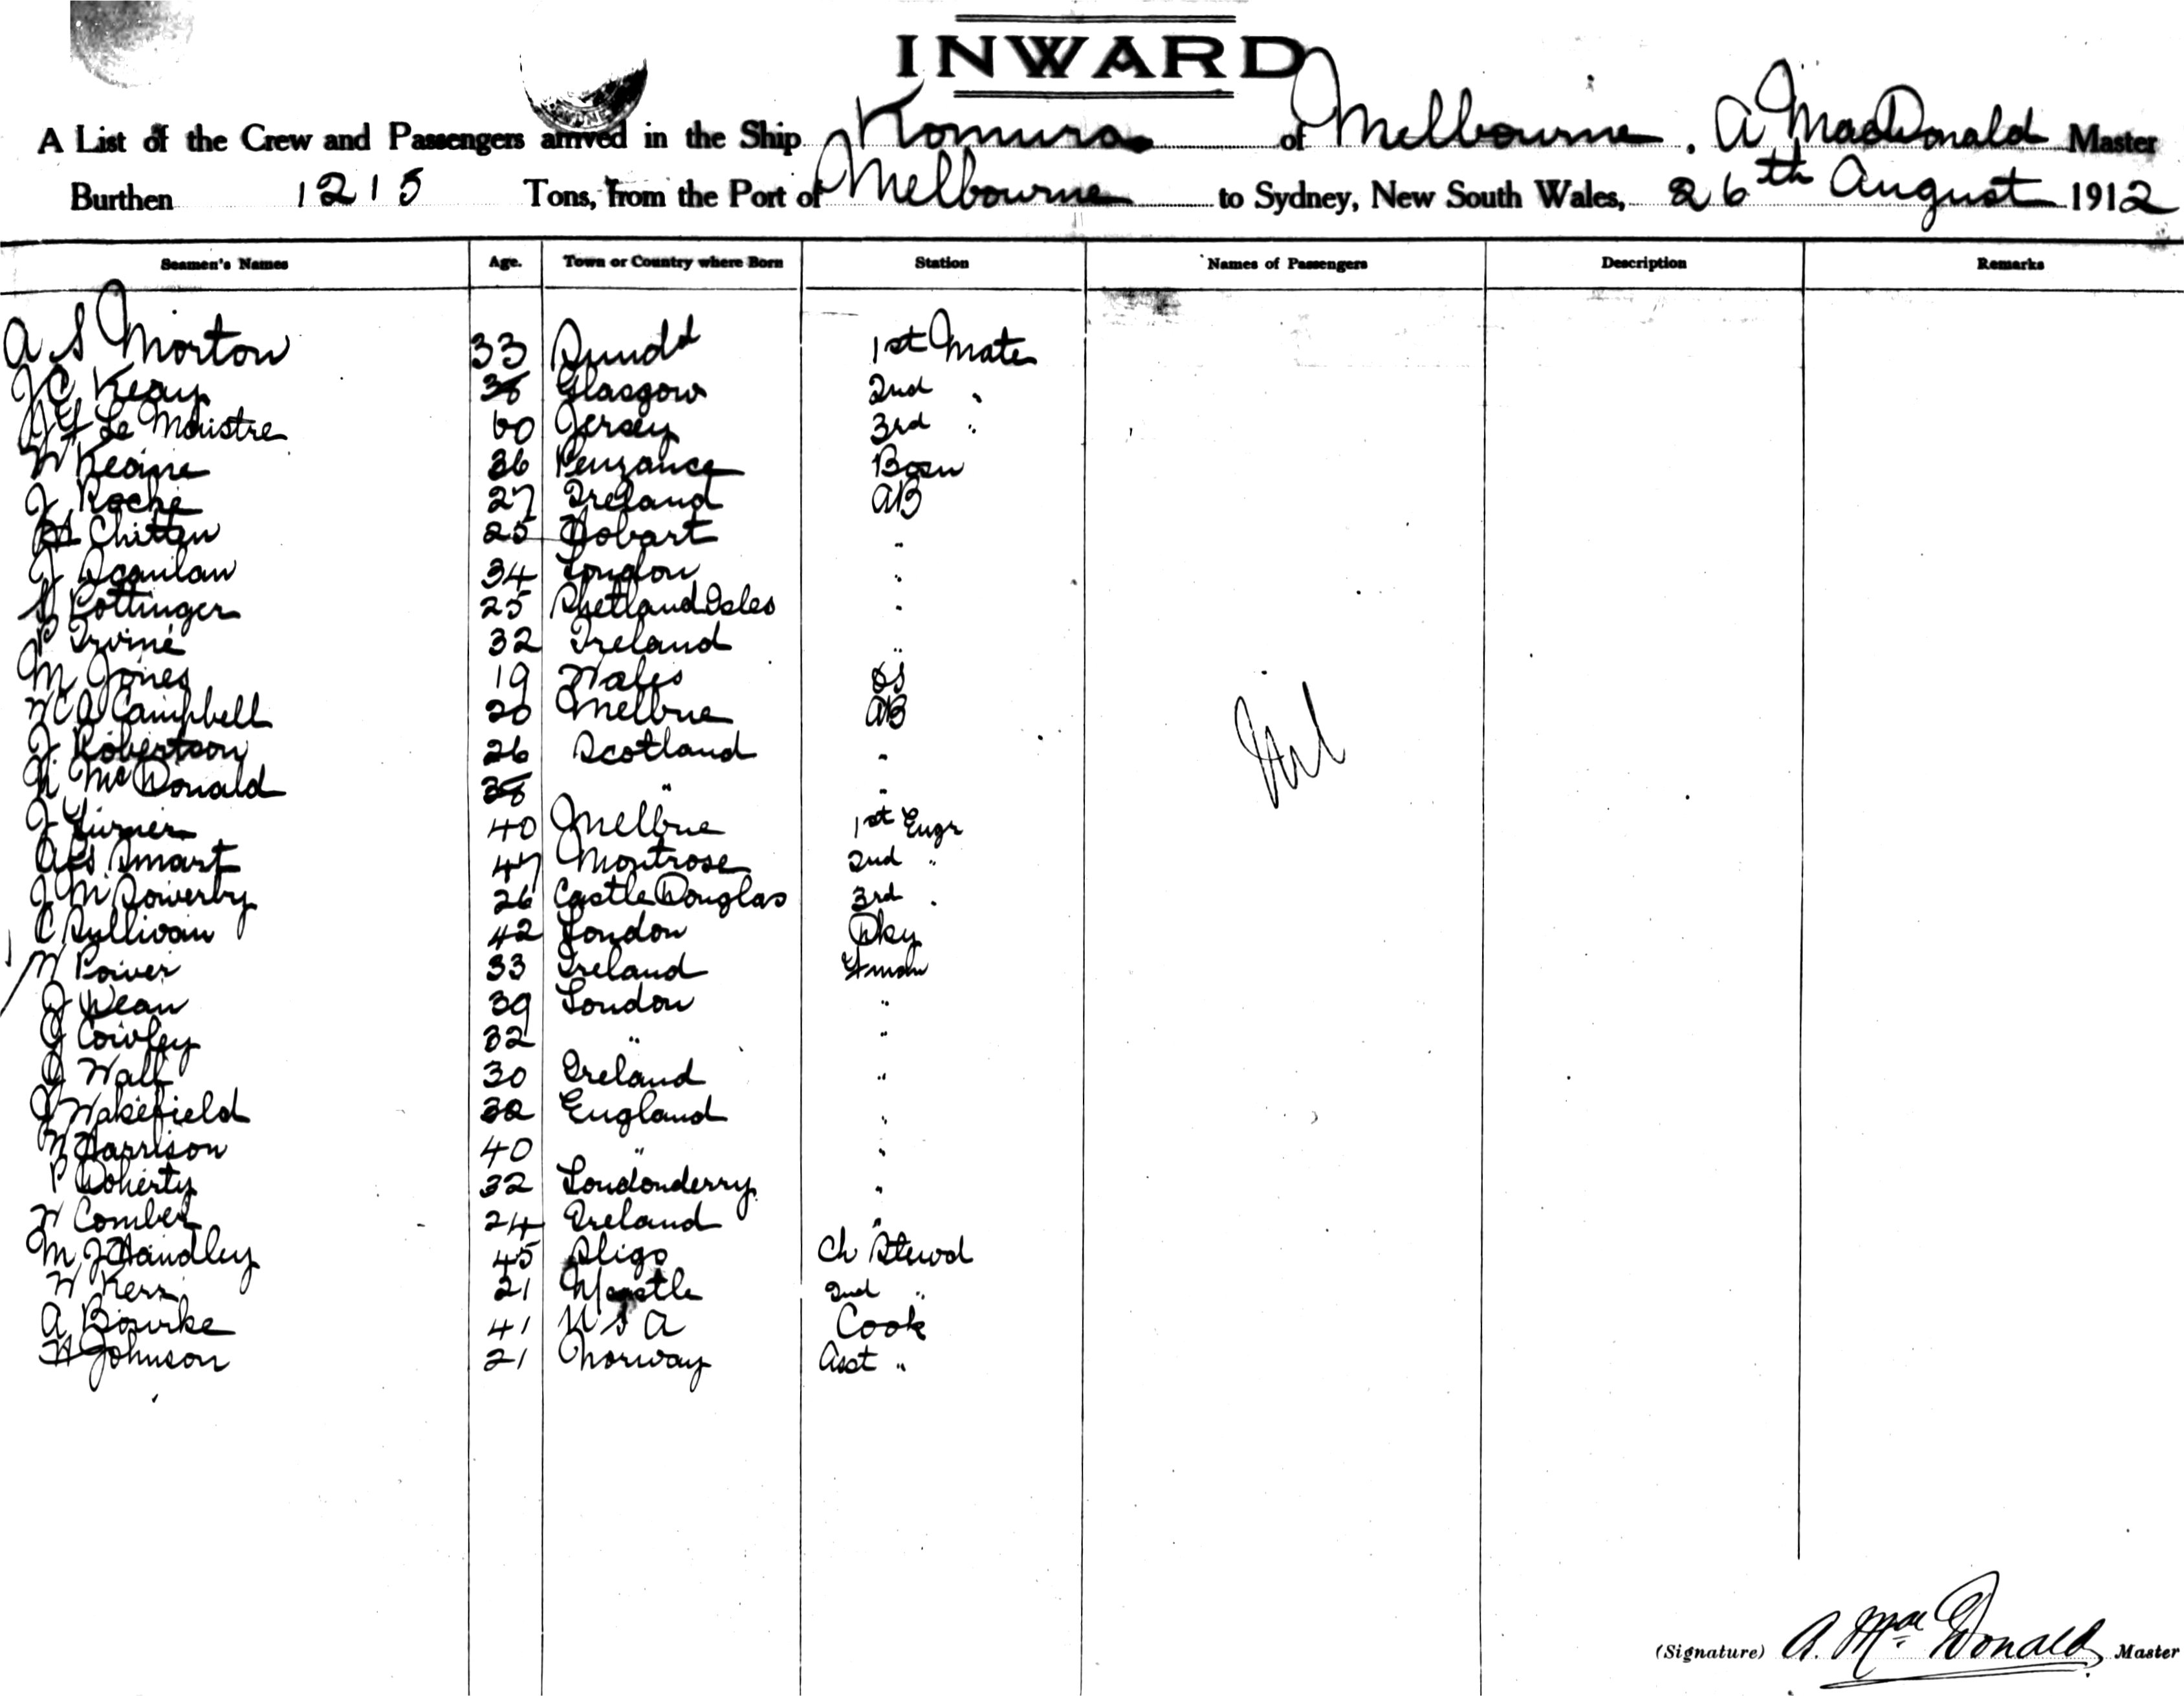 INWARD
A List of the Crew and Passengers arrived in the Ship Komura of Melbourne, A MacDonald Master
Burthen 1215 Tons, from the Port of Melbourne to Sydney, New South Wales, 26th August 1912
Seamen's Names Age. Town or Country where Born Station Names of Passengers Description Remarks
A S Morton 33 1st Mate
J C Keay Glasgow 2nd "
Le Maistre 60 Jersey 3rd "
W Keane 36 Penzance Bosn
J Roche 27 Ireland AB
Chitten 25 Hobart "
J Scanlan 34 London "
Pottinger 25 Shetland Isles "
P Irvine 32 Ireland "
M Jones 19 Wales OS
W C A Campbell 20 Melbne AB
J Robertson 26 Scotland "
McDonald 38 " "
J Turner 40 Melbne 1st Engr
Smart 47 Montrose 2nd "
J M Sowerby 26 Castle Douglas 3rd "
C Sullivan 42 London Dky
W Power 33 Ireland Fman
J Dean 39 London "
J Cowley 32 " "
J Wall 30 Ireland "
J Wakefield 32 England "
W Harrison 40 " "
P Doherty 32 Londonderry "
W Comber 24 Ireland "
M J Handley 45 Sligo Ch Stewd
W Kerr 21 N/castle 2nd "
A Bourke 41 U S A Cook
H Johnson 21 Norway Asst "
Nil
(Signature) A. MacDonald Master